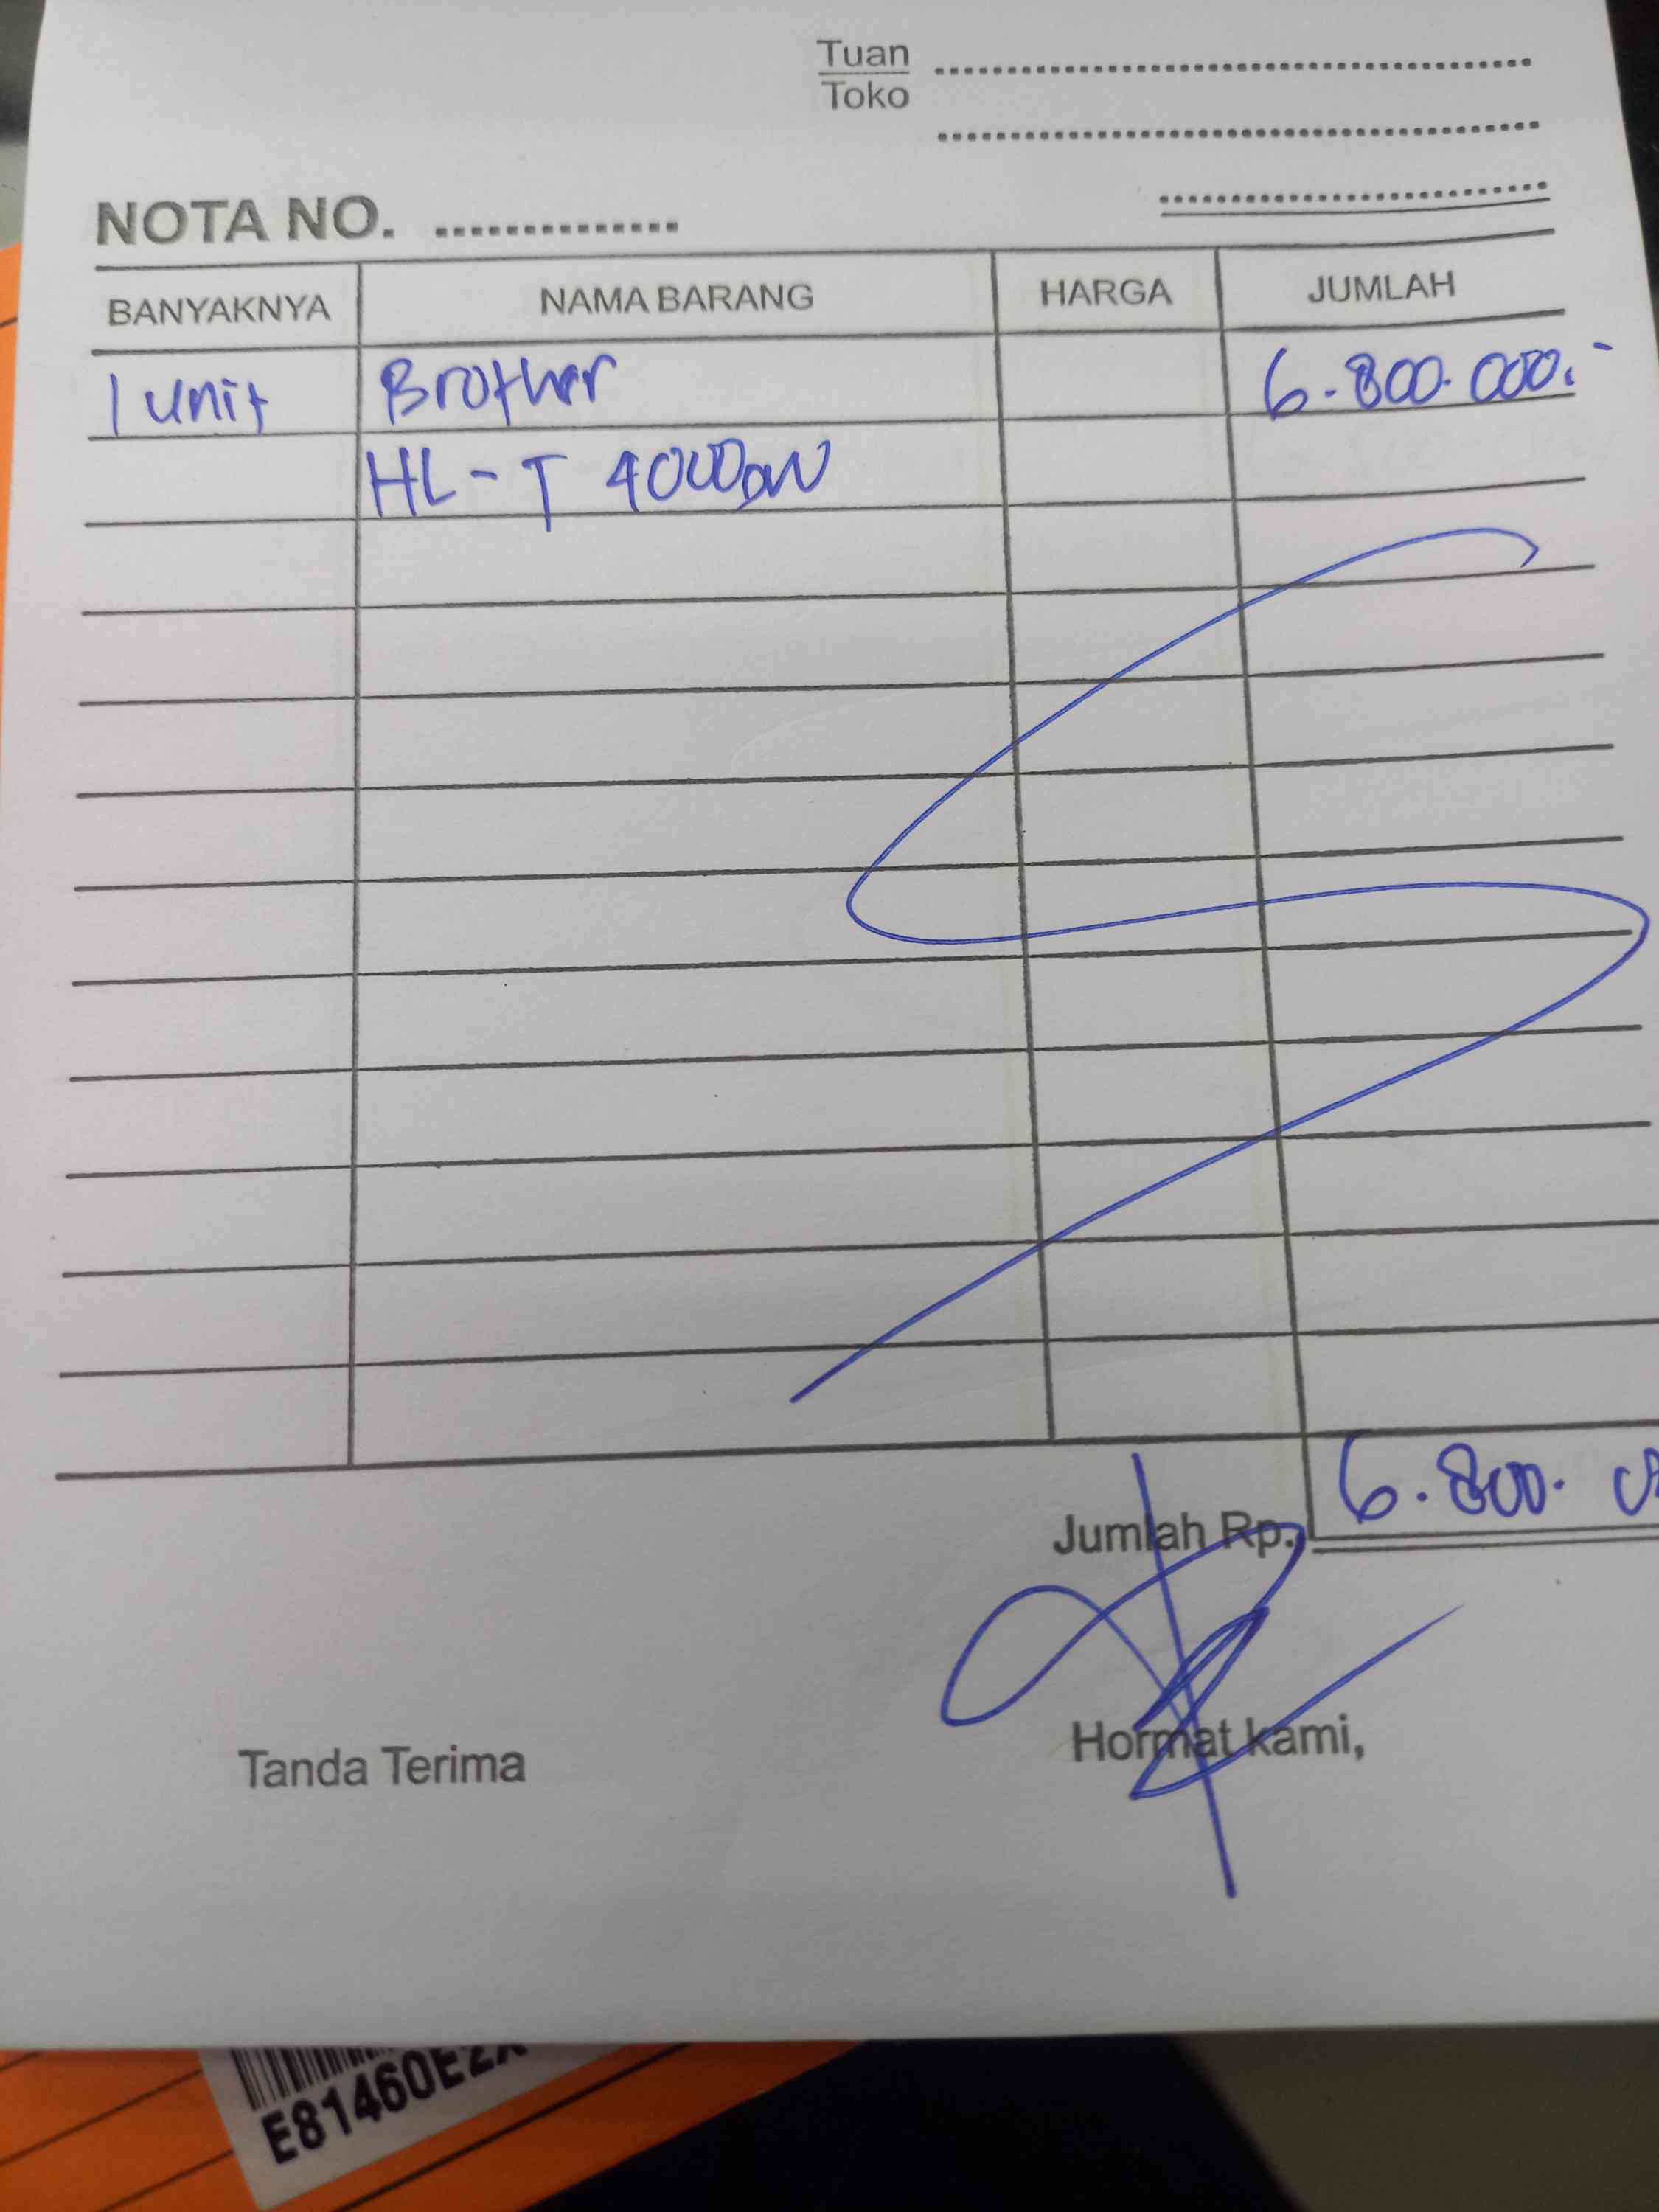 Tuan
Toko
NOTA NO.
BANYAKNYA NAMA BARANG HARGA JUMLAH
1 unit Brother 6.800.000.-
HL-T 4000DW
Jumlah Rp. 6.800.
Tanda Terima Hormat kami,